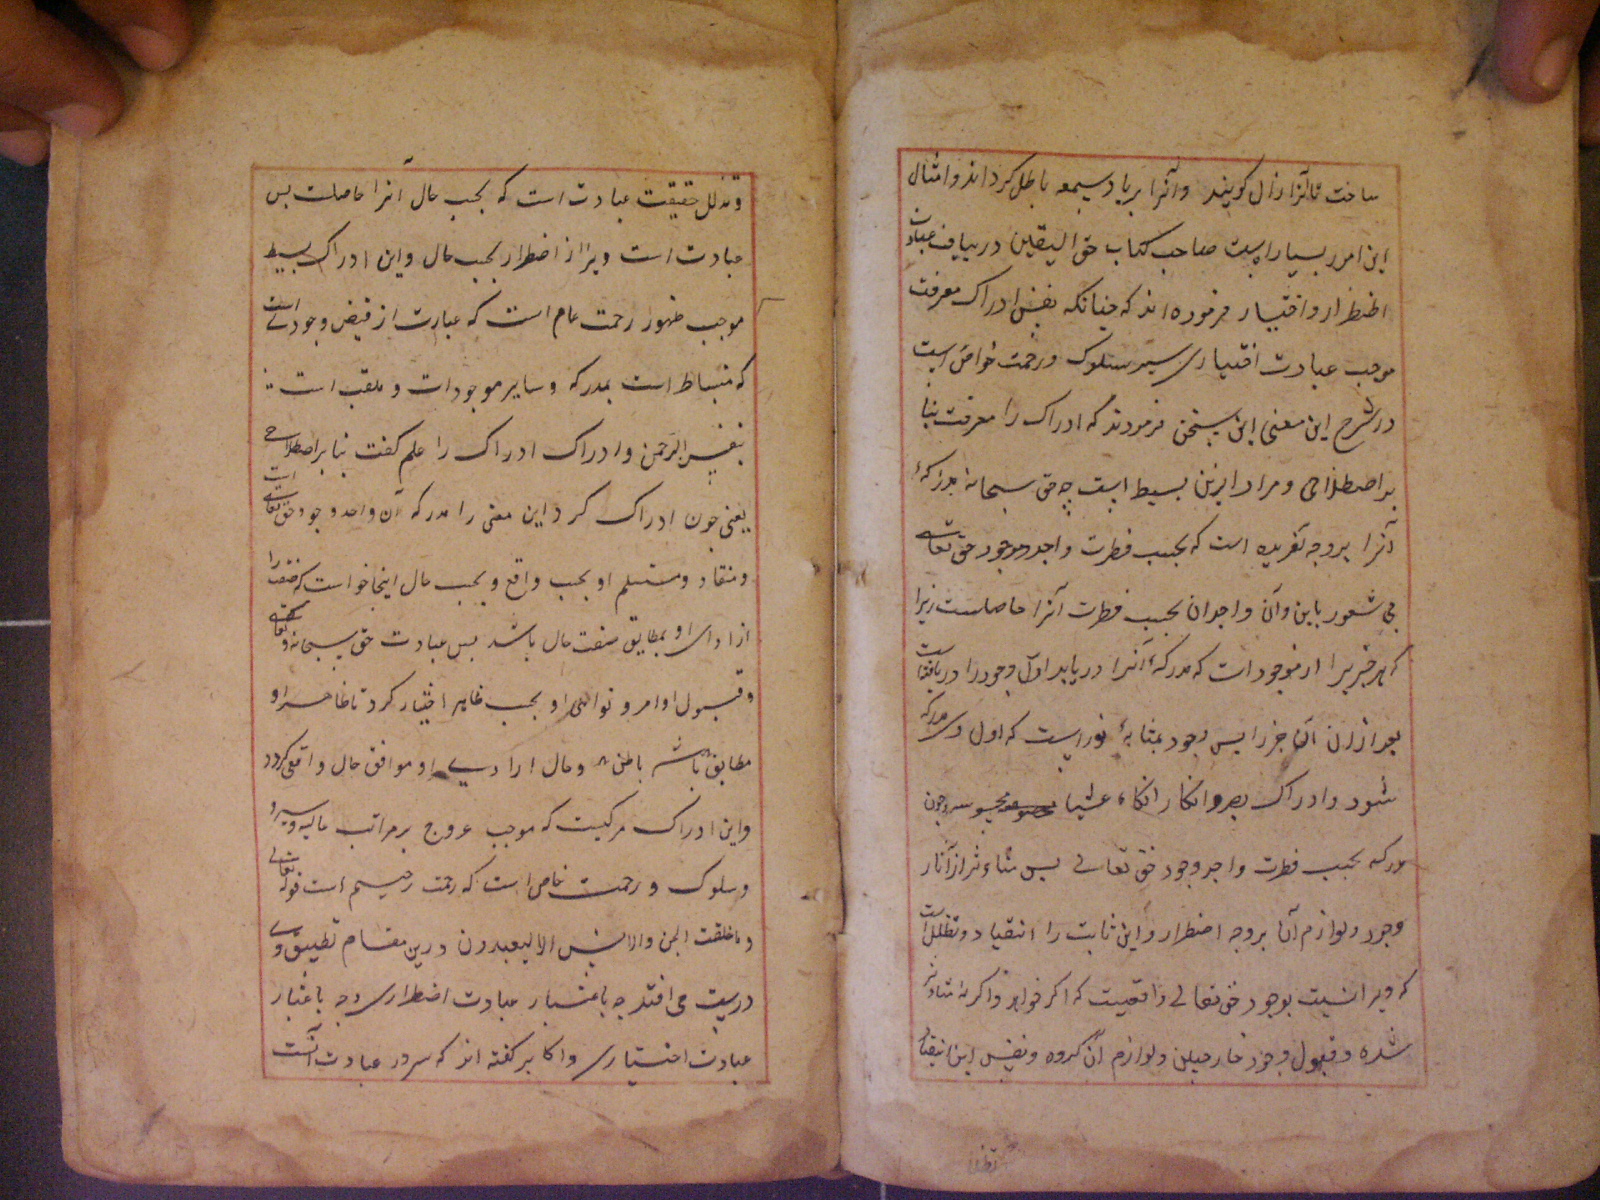 ساخت تا آنرا زوال گویند و آنرا بریا و سمعه باطل کرداند و امثال
این امر بسیار است صاحب کتاب حق الیقین در بیان عبادت
اضطرار و اختیار فرموده اند که چنانکه نفس ادراک معرفت
موجب عبادت اختیاری سیر سلوک و رحمت خواص است
در شرح این معنی این سخن فرمودند که ادراک را معرفت بنا
بر اصطلاحی و مراد ازین بسیط است چه حق سبحانه مدرکهٔ
آنرا بر وجه آفریده است که بحسب فطرت واجد وجود حق تعالی
بی شعور باین و آن واجدان بحسب فطرت آنرا حاصلست زیرا
که هر چیز را از موجودات که مدرکه آنرا در یابد اول وجود را دریافته است
بعد ازان آن چیز را پس وجود بمثابهٔ نوریست که اول وی مدرکه
شود و ادراک بصر و انکار انکاء عشیا محسوسه و چون
مدرکه بحسب فطرت واجد وجود حق تعالی پس متاثر از آثار
وجود و لوازم آنا بر وجه اضطرار و این ثابت را انقیاد و تذلل است
که ویرا نسبت بوجود حق تعالی واقعیت که اگر خواهد و اگر نه متاثر
شده و قبول وجود خارجیش و لوازم آن کرده و نفس این انقیاد
و تذلل حقیقت عبادت است که بحسب حال آنرا حاصلست پس
عبادت است ویرا از اضطرار بحسب حال و این ادراک بسیط
موجب ظهور رحمت عام است که عبارت از فیض وجود است
که منبساط است بمدرکه و سایر موجودات و ملقب است
بنفس الرحمن و ادراک ادراک را علم کفت بنا بر اصطلاحی است
یعنی چون ادراک کرد این معنی را مدرکه آن واحد وجود حق تعالی است
و منقاد و مستسلم او بحسب واقع و بحسب حال اینجا خواست که
از ادای او بمطابق صفت حال باشد پس عبادت حق سبحانه و تعالی
و قبول اوامر و نواهی او بحسب ظاهر اختیار کرد تا ظاهر او
مطابق باشد باطن و حال ارادی او موافق حال واقعی کردد
و این ادراک مرکبست که موجب عروج بر مراتب عالیه و سیر
و سلوک و رحمت خاص است که رحمت رحیم است قوله تعالی
و ما خلقت الجن والانس الا لیعبدون درین مقام تطبیق وی
درست می افتد چه باعتبار عبادت اضطراری و چه باعتبار
عبادت اختیاری و اکابر کفته اند که سرور عبادت آنست